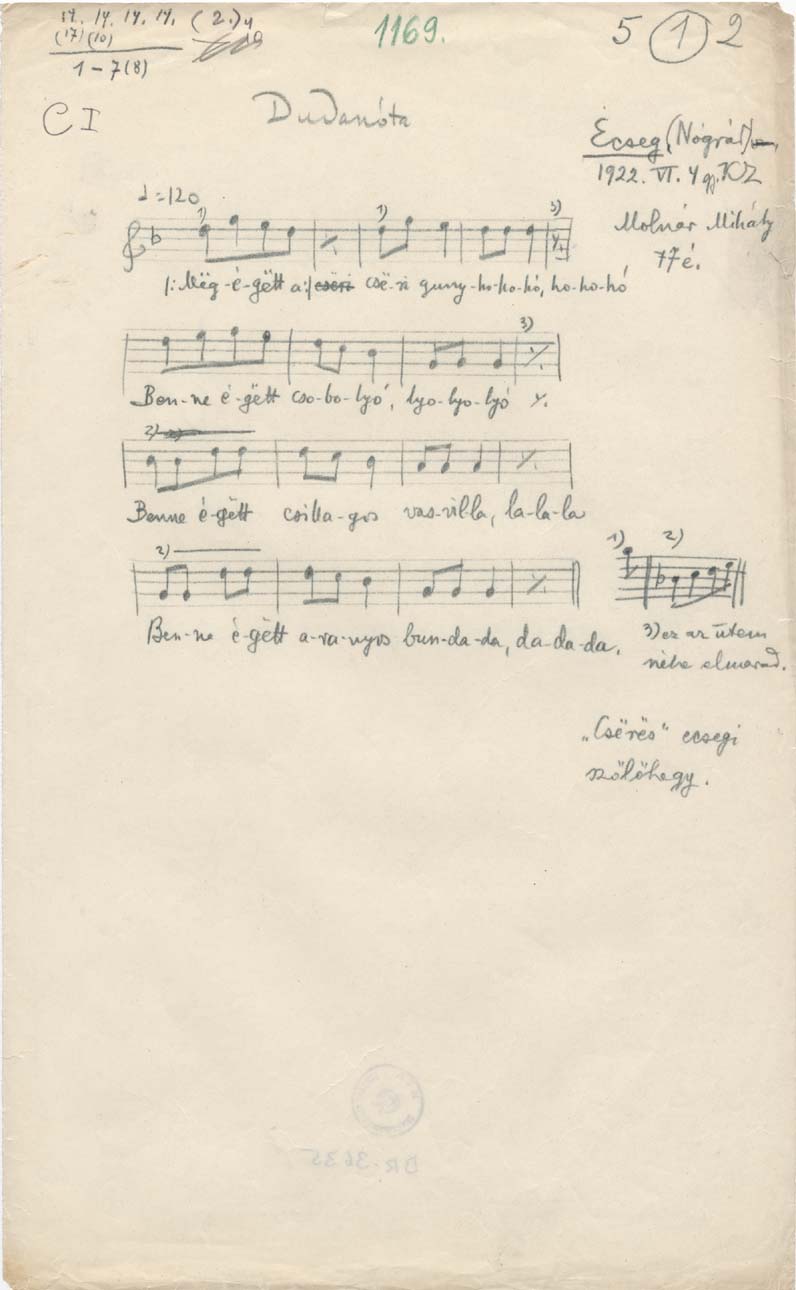 14. 14. 14. 14. (2.)4
(17)(10)
1-7(8)
1169.
5 1 2
C I
Dudanóta
Écseg, (Nógrád)
1922. VI. 4 gy. KZ
Molnár Mihály
77 é.
♩=120
1) 1) 3)
|: Mëg-é-gëtt a :| csëri csë-ri guny-ho-ho-hó, ho-ho-hó
3)
Ben-ne é-gëtt cso-bo-lyó, lyo-lyo-lyó ٪.
2)
Benne é-gëtt csilla-gos vas-vil-la, la-la-la
2)
Ben-ne é-gëtt a-ra-nyos bun-da-da, da-da-da.
1) 2)
3) ez az ütem
néha elmarad.
„Csërës" ecsegi
szőlőhegy.
DR-3635